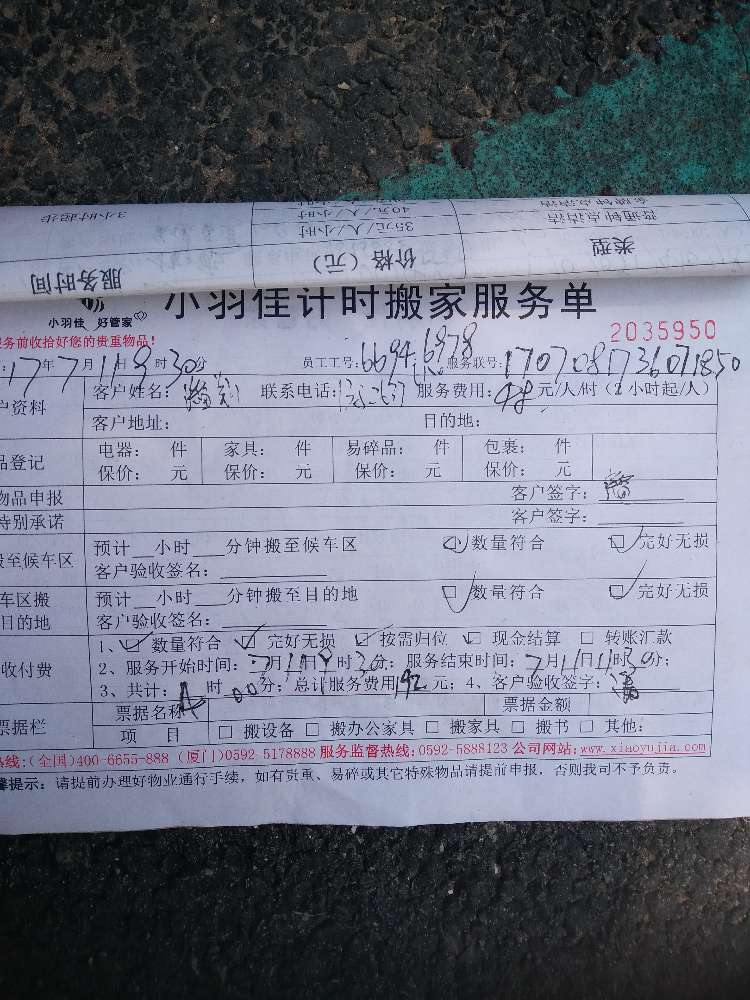 3小时起步 40元/人/小时 普通钟点清洁
35元/人/小时
服务时间 价格（元） 类型
小羽佳 好管家
小羽佳计时搬家服务单
务前收拾好您的贵重物品！
2035950
17年7月11日 时30分 员工工号：6694 6978 服务联号：17070817360711850
户资料 客户姓名： 联系电话： 服务费用：48元/人/时（2小时起/人）
客户地址： 目的地：
品登记 电器： 件 家具： 件 易碎品： 件 包裹： 件
保价： 元 保价： 元 保价： 元 保价： 元
物品申报 客户签字：
特别承诺 客户签字：
搬至候车区 预计__小时___分钟搬至候车区 数量符合 完好无损
客户验收签名：
车区搬 预计__小时___分钟搬至目的地 数量符合 完好无损
目的地 客户验收签名：
收付费 1、 数量符合 完好无损 按需归位 现金结算 转账汇款
2、服务开始时间：7月11日 时30分；服务结束时间：7月11日11时30分；
3、共计：4时00分；总计服务费用192元；4、客户验收签字：
票据栏 票据名称 票据金额
项 目 搬设备 搬办公家具 搬家具 搬书 其他：
热线：(全国)400-6655-888 (厦门)0592-5178888 服务监督热线：0592-5888123 公司网站：www.xiaoyujia.com
馨提示：请提前办理好物业通行手续，如有贵重、易碎或其它特殊物品请提前申报，否则我司不予负责。